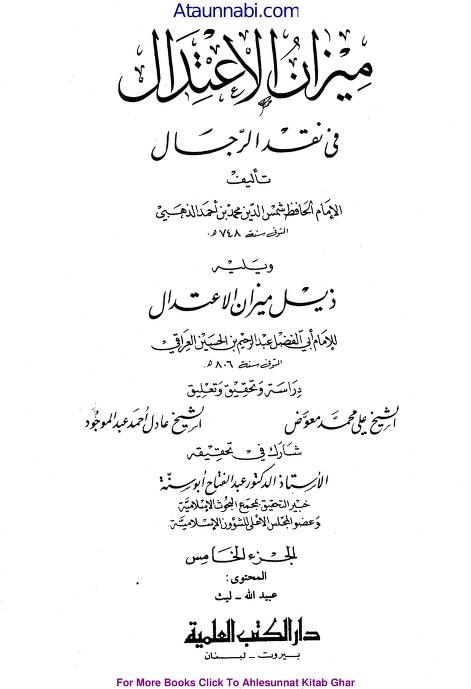 Ataunnabi.com
ميزان الاعتدال
في نقد الرجال
تأليف
الإمام الحافظ شمس الدين محمد بن أحمد الذهبي
المتوفى سنة ٧٤٨ هـ
ويليه
ذيل ميزان الاعتدال
للإمام أبي الفضل عبد الرحيم بن الحسين العراقي
المتوفى سنة ٨٠٦ هـ
دراسة وتحقيق وتعليق
الشيخ علي محمد معوض الشيخ عادل أحمد عبد الموجود
شارك في تحقيقه
الأستاذ الدكتور عبد الفتاح أبو سنة
خبير التحقيق بمجمع البحوث الإسلامية
وعضو المجلس الأعلى للشؤون الإسلامية
الجزء الخامس
المحتوى:
عبيد الله - ليث
دار الكتب العلمية
بيروت - لبنان
For More Books Click To Ahlesunnat Kitab Ghar